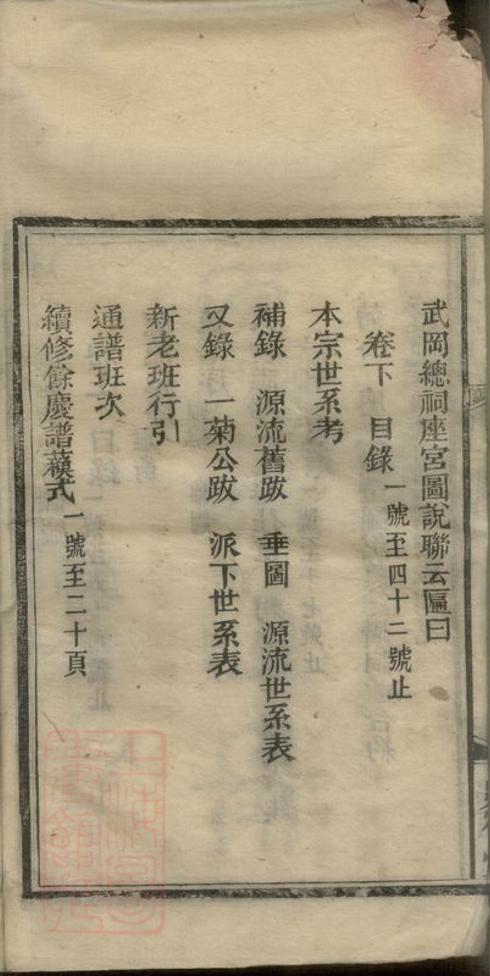 武岡總祠座宮圖說聯云匾曰
卷下 目錄 一號至四十二號止
本宗世系考
補錄 源流舊跋 垂圖 源流世系表
又錄 一菊公跋 派下世系表
新老班行引
通譜班次
續修餘慶譜蘓式 一號至二十頁